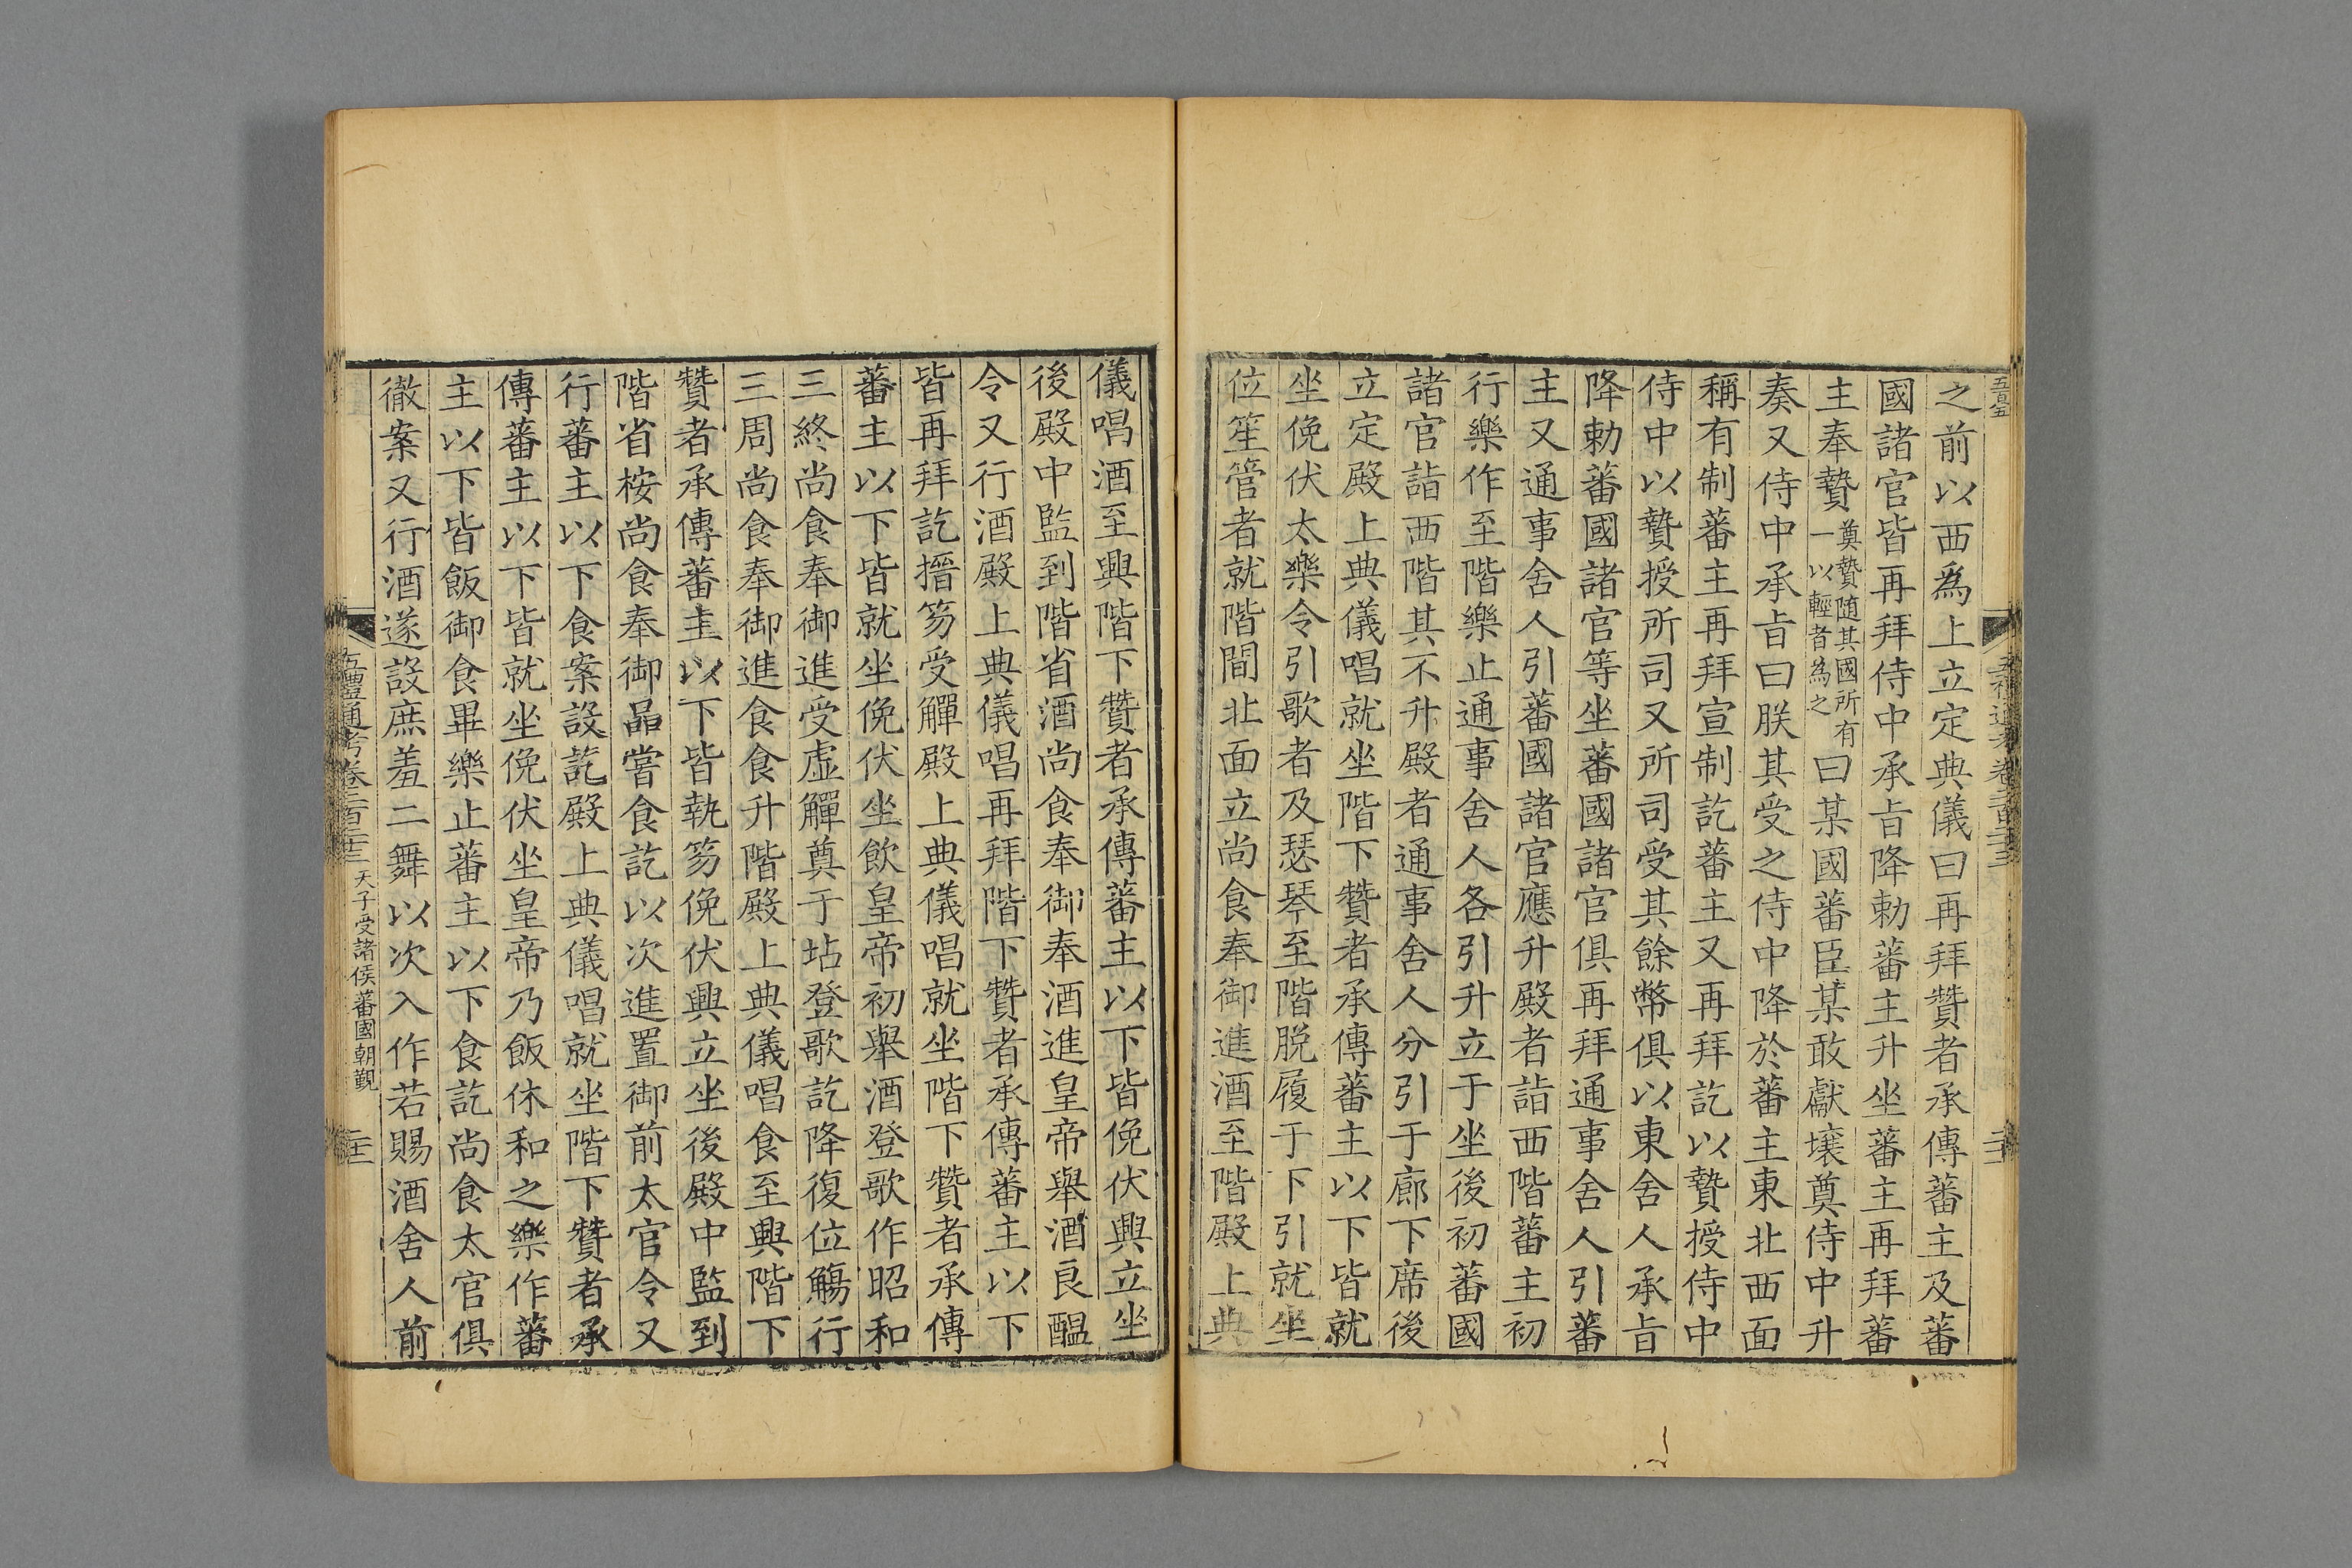 之前以西爲上立定典儀曰再拜贊者承傳蕃主及蕃
國諸官皆再拜侍中承旨降勅蕃主升坐蕃主再拜蕃
主奉贄奠贄随其國所有一以輕者為之曰某國蕃臣某敢獻壤奠侍中升
奏又侍中承旨曰朕其受之侍中降於蕃主東北西面
稱有制蕃主再拜宣制訖蕃主又再拜訖以贄授侍中
侍中以贄授所司又所司受其餘幣俱以東舍人承旨
降勅蕃國諸官等坐蕃國諸官俱再拜通事舍人引蕃
主又通事舍人引蕃國諸官應升殿者詣西階蕃主初
行樂作至階樂止通事舍人各引升立于坐後初蕃國
諸官詣西階其不升殿者通事舍人分引于廊下席後
立定殿上典儀唱就坐階下贊者承傳蕃主以下皆就
坐俛伏太樂令引歌者及瑟琴至階脱履于下引就坐
位笙管者就階間北面立尚食奉御進酒至階殿上典
儀唱酒至興階下贊者承傳蕃主以下皆俛伏興立坐
後殿中監到階省酒尚食奉御奉酒進皇帝舉酒良醞
令又行酒殿上典儀唱再拜階下贊者承傳蕃主以下
皆再拜訖搢笏受觶殿上典儀唱就坐階下贊者承傳
蕃主以下皆就坐俛伏坐飲皇帝初舉酒登歌作昭和
三終尚食奉御進受虛觶奠于坫登歌訖降復位觴行
三周尚食奉御進食食升階殿上典儀唱食至興階下
贊者承傳蕃主以下皆執笏俛伏興立坐後殿中監到
階省桉尚食奉御品嘗食訖以次進置御前太官令又
行蕃主以下食案設訖殿上典儀唱就坐階下贊者承
傳蕃主以下皆就坐俛伏坐皇帝乃飯休和之樂作蕃
主以下皆飯御食畢樂止蕃主以下食訖尚食太官俱
徹案又行酒遂設庶羞二舞以次入作若賜酒舍人前
五禮通考卷二百二十三 天子受諸侯蕃國朝覲 二十二